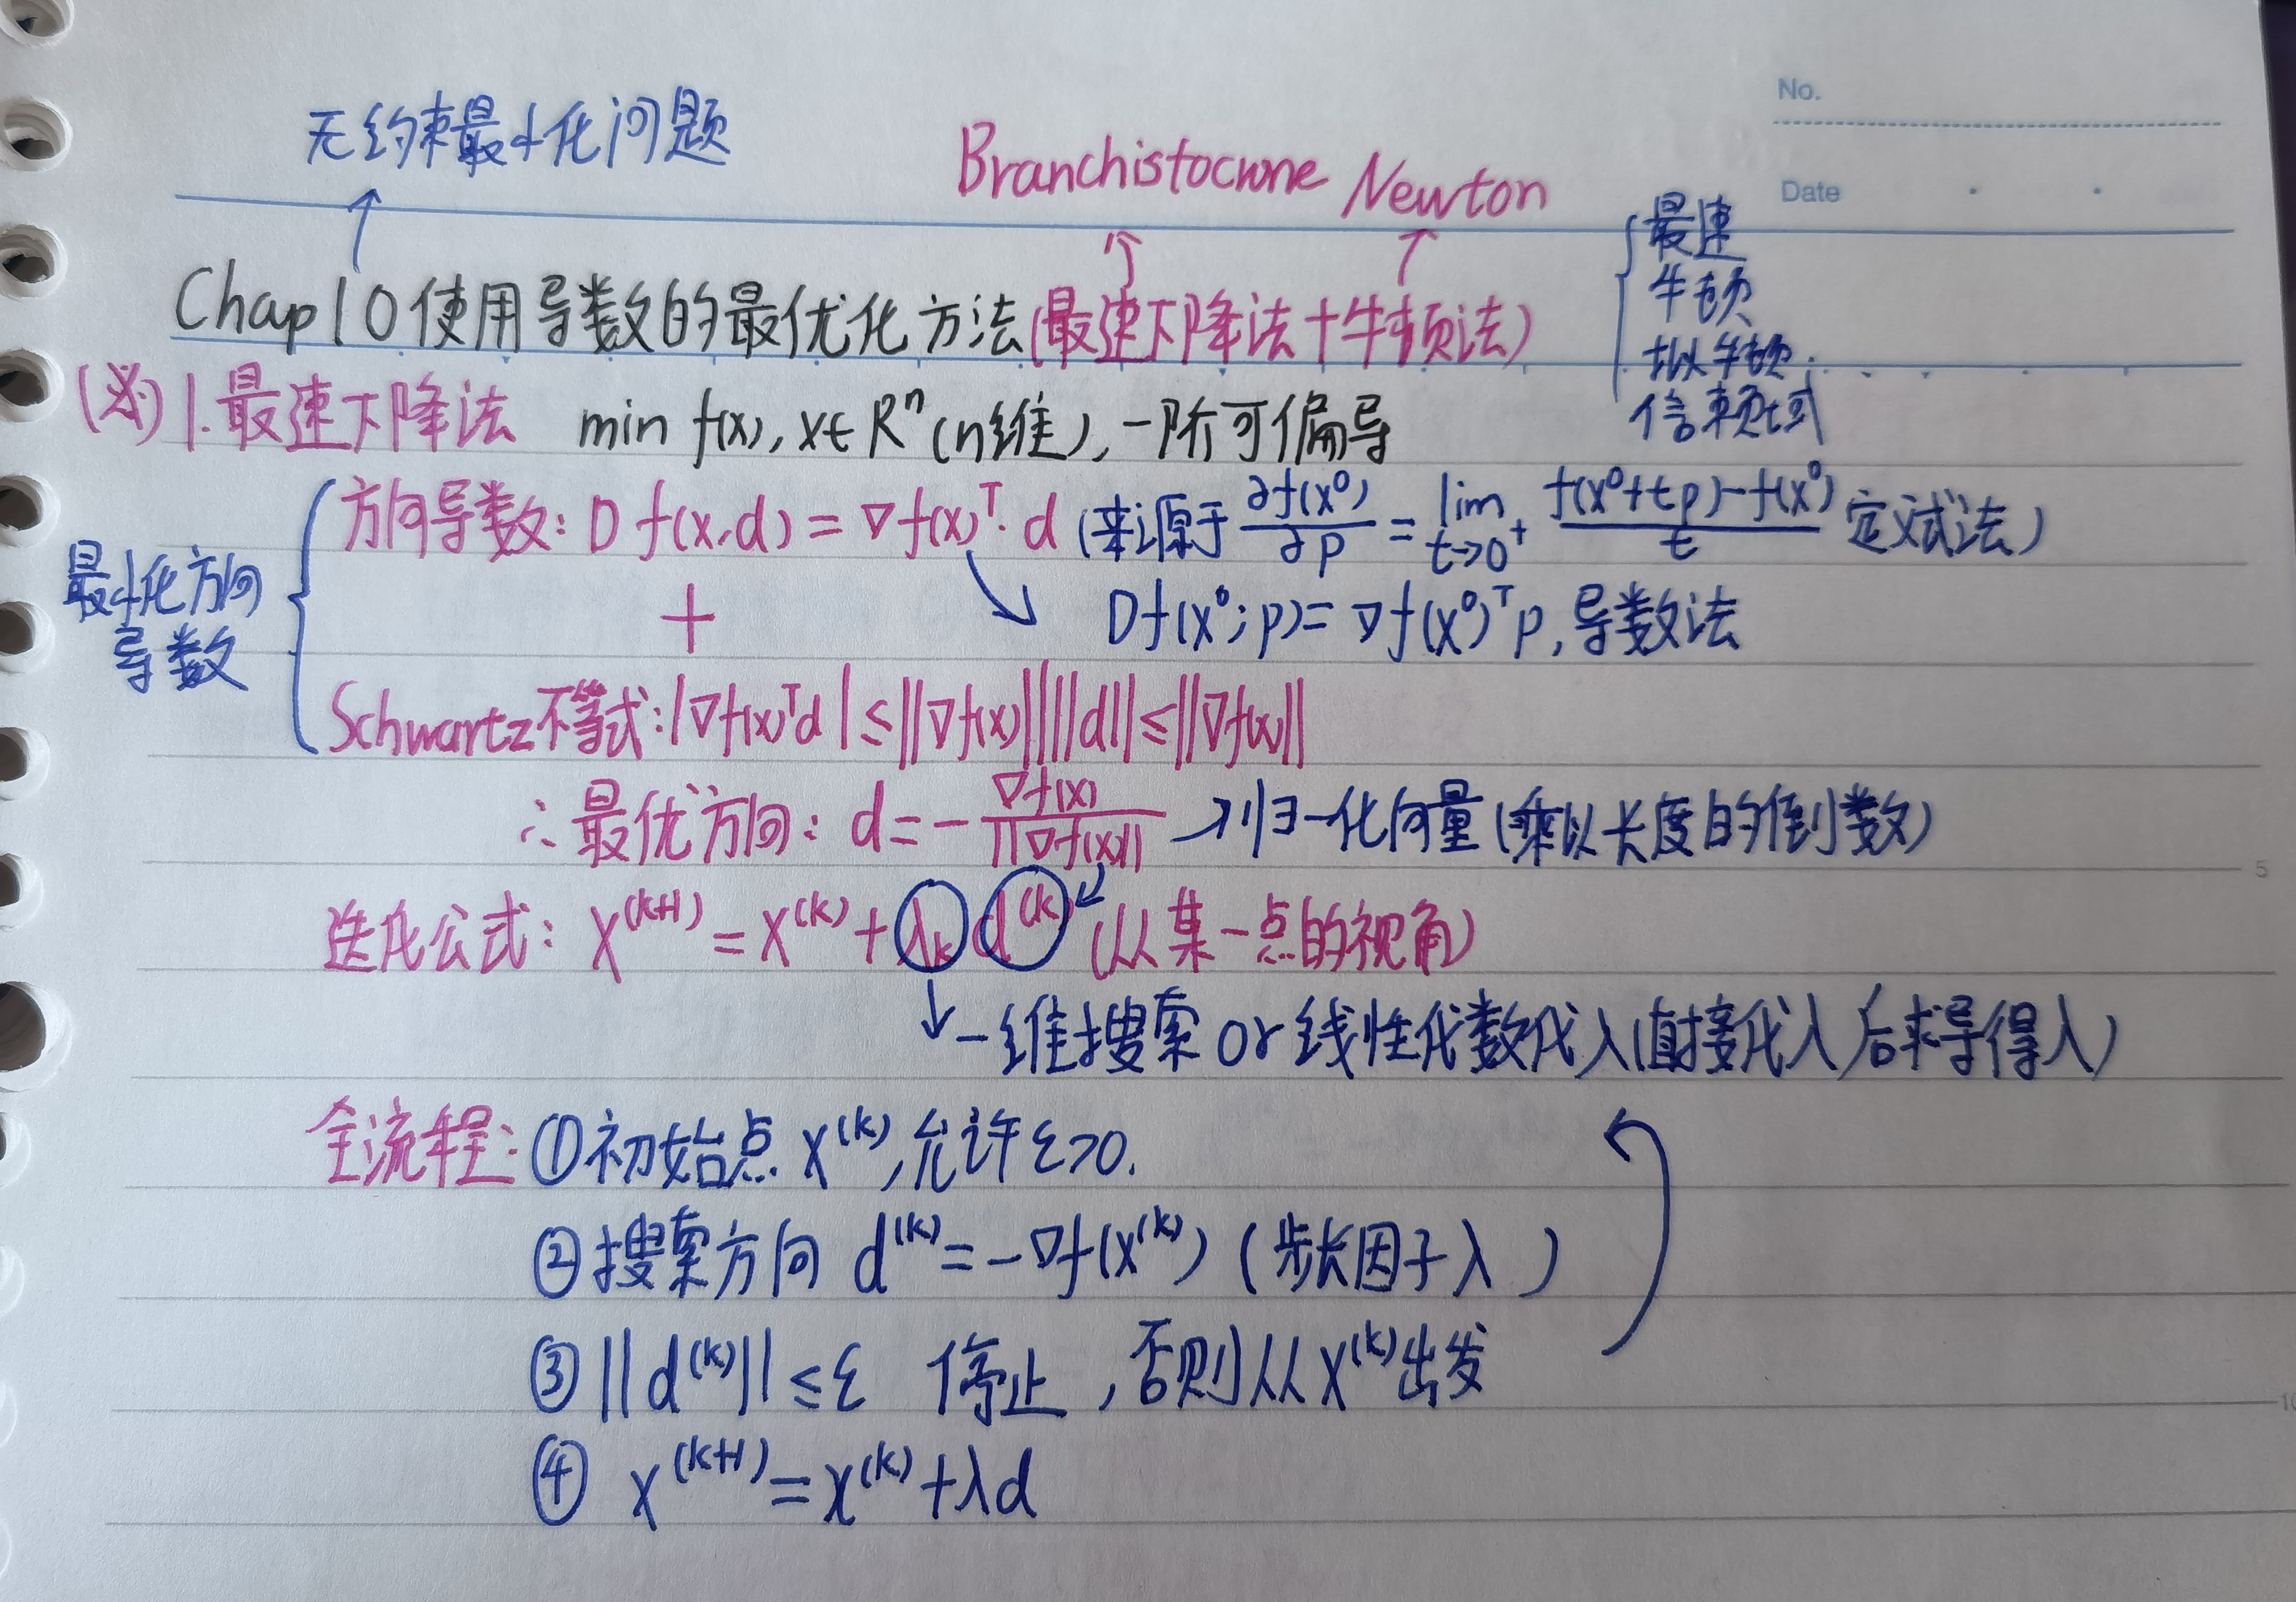 No.
Date
无约束最小化问题
Branchistocrone Newton
Chap10 使用导数的最优化方法(最速下降法+牛顿法)
最速
牛顿
拟牛顿
信赖域
(必) 1.最速下降法 min f(x), x∈Rⁿ (n维), 一阶可偏导
最小化方向导数
方向导数: D f(x,d) = ∇f(x)ᵀ·d (来源于 ∂f(x⁰)/∂p = lim t→0⁺ (f(x⁰+tp)-f(x⁰))/t 定义法)
+
Df(x⁰;p)=∇f(x⁰)ᵀp, 导数法
Schwartz不等式: |∇f(x)ᵀd| ≤ ||∇f(x)|| ||d|| ≤ ||∇f(x)||
∴最优方向: d = -∇f(x)/||∇f(x)|| → 归一化向量(乘以长度的倒数)
迭代公式: x^(k+1) = x^(k) + λₖ d^(k) (从某一点的视角)
↓一维搜索 or 线性代数代入(直接代入后求导得λ)
全流程: ①初始点 x^(k), 允许 ε>0.
②搜索方向 d^(k) = -∇f(x^(k)) (步长因子λ )
③ ||d^(k)|| ≤ε 停止, 否则从x^(k)出发
④ x^(k+1) = x^(k) + λd
5
10